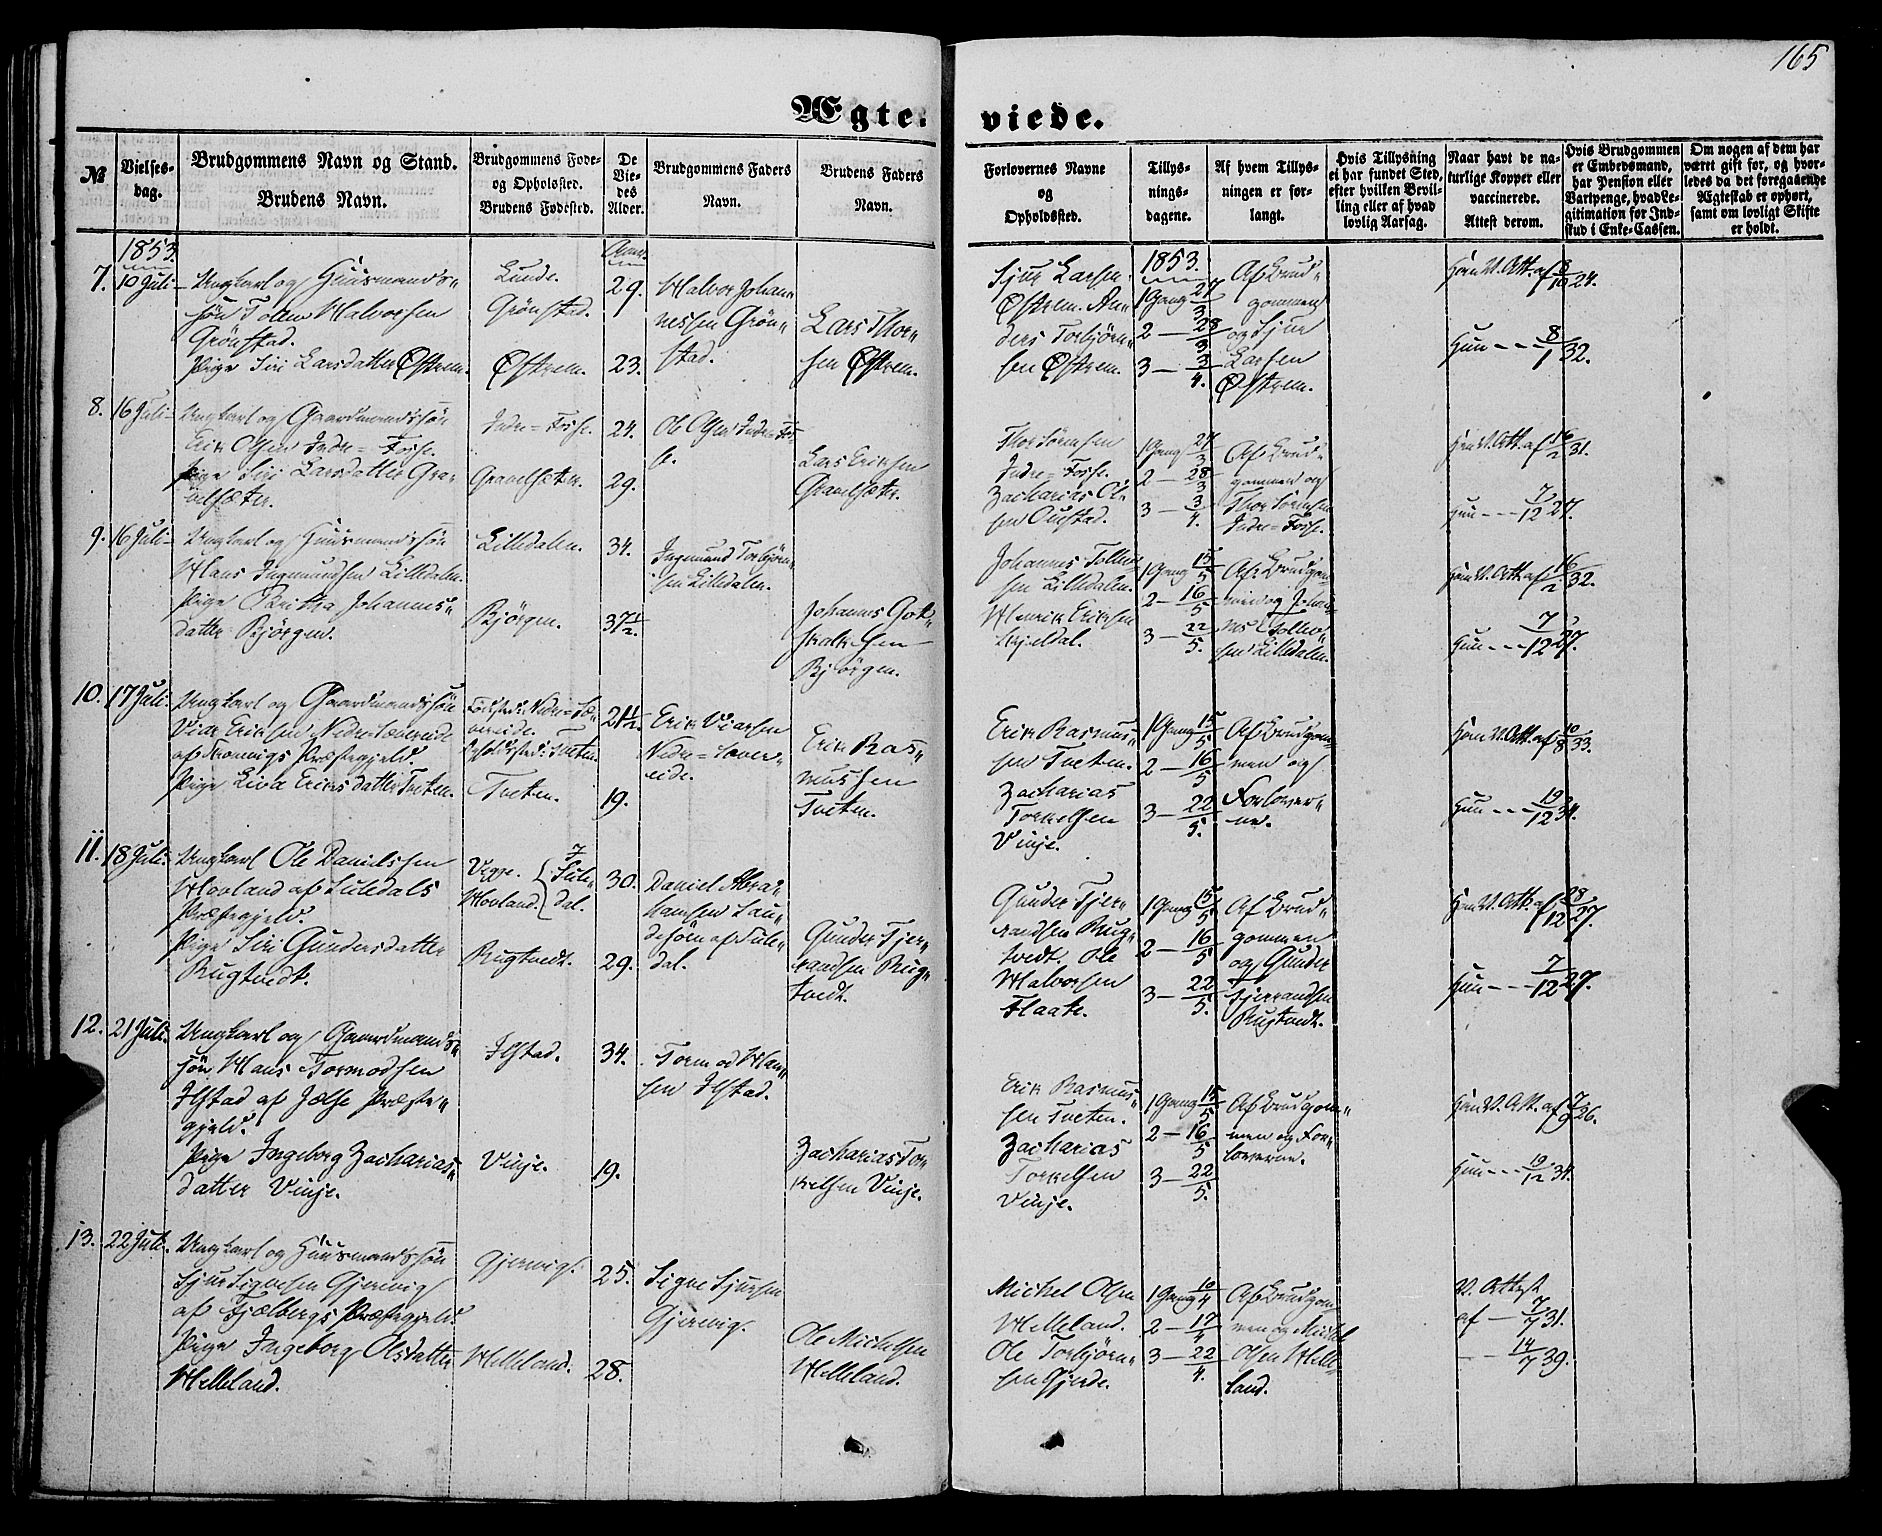 165
Ægte-viede.
№
Vielses-
dag.
Brudgommens Navn og Stand.
Brudens Navn.
Brudgommens Føde-
og Opholdsted.
Brudens Fødested.
De
Vie-
des
Alder.
Brudgommens Faders
Navn.
Brudens Faders
Navn.
Forlovernes Navne
og
Opholdssted.
Tillys-
nings-
dagene.
Af hvem Tillys-
ningen er for-
langt.
Hvis Tillysning
ei har fundet Sted,
efter hvilken Bevil-
ling eller af hvad
lovlig Aarsag.
Naar havt de na-
turlige Kopper eller
vaccinerede.
Attest derom.
Hvis Brudgommen
er Embedsmand,
har Pension eller
Vartpenge, hvad Le-
gitimation for Ind-
skud i Enke-Cassen.
Om nogen af dem har
været gift for, og hvor-
ledes da det foregaaende
Ægteskab er ophørt,
samt om lovligt Skifte
er holdt.
1853.
7. 10 Juli
Ungkarl og Huusmands-
søn Tollev Halvorsen
Grönstad.
Pige Siri Larsdatter Østrem.
Lunde.
Grönstad.
Østrem.
29.
23.
Halvor Johan-
nessen Grön-
stad.
Lars Thor-
sen Østrem.
Sjur Larsen
Østrem. An-
ders Torbjörn-
sen Østrem.
1853.
1 Gang 27/3
2 — 28/3
3 — 3/4.
Af Brud-
gommen
og Sjur
Larsen
Østrem.
Han V. Att. af 8/10 24.
Hun - - - 8/1 32.
8. 16 Juli
Ungkarl og Gaardmandssön
Erik Olsen Indre-Fosse.
Pige Siri Larsdatter Gra-
velsæter.
Indre-Fosse.
Gravelsæter.
24.
29.
Ole Olsen Indre-Fos-
se.
Lars Eriksen
Gravelsæter.
Thor Tormsen
Indre-Fosse.
Zacharias Ol-
sen Oustad.
1 Gang 27/3
2 — 28/3
3 — 3/4.
Af Brud-
gommen og
Thor Tormsen
Indre-Fosse.
Han V. Att. af 16/2 31.
Hun - - - 7/12 27.
9. 16 Juli
Ungkarl og Huusmandssön
Hans Ingmundsen Lilledalen.
Pige Britha Johannes-
datter Bjørgen.
Lilledalen.
Bjørgen.
34.
37 1/2.
Ingmund Torbjörn-
sen Lilledalen.
Johannes Got-
skalksen
Bjørgen.
Johannes Tollev-
sen Lilledalen.
Henrik Eriksen
1 Gang 15/5
2 — 16/5
3 — 22/5.
Af Brudgom-
men og Johan-
nes Tollev-
sen Lilledalen.
Han V. Att. af 16/2 32.
Hun - - - 7/12 27.
10. 17 Juli
Ungkarl og Gaardmandssön
Viar Eriksen Nedre-Løvereide
af Præstegjeld.
Pige Liva Eriksdatter Tveten.
Fødested: Nedre-Lø-
vereide.
Opholdssted: Tveten.
Tveten.
21 1/2
19.
Erik Viarsen
Nedre-Løver-
eide.
Erik Ras-
mussen
Tveten.
Erik Rasmus-
sen Tveten.
Zacharias
Torkelsen
Vinje.
1 Gang 15/5
2 — 16/5
3 — 22/5.
Af Brudgom-
men og
Forlover-
ne.
Han V. Att. af 10/8 33.
Hun - - - 19/12 34.
11. 18 Juli
Ungkarl Ole Danielssen
Hovland af Suledals
Præstegjeld.
Pige Siri Gundersdatter
Rugtvedt.
Vegge.
Hovland.
I
Sule-
dal.
Rugtvedt.
30.
29.
Daniel Abra-
hamsen
af Sule-
dal.
Gunder Tjer-
randsen Rug-
tvedt.
Gunder Tjer-
randsen Rug-
tvedt. Ole
Halvorsen
Flaate.
1 Gang 15/5
2 — 16/5
3 — 22/5.
Af Brud-
gommen
og Gunder
Tjerrandsen
Rugtvedt.
Han V. Att. af 28/12 27.
Hun - - - 7/12 27.
12. 21 Juli.
Ungkarl og Gaardmands-
søn Hans Tormodsen
Ilstad af Jælse Præste-
gjeld.
Pige Ingeborg Zacharias-
datter Vinje.
Ilstad.
Vinje.
34.
19.
Tormod Han-
sen Ilstad.
Zacharias Tor-
kelsen Vinje.
Erik Rasmus-
sen Tveten.
Zacharias
Torkelsen
Vinje.
1 Gang 15/5
2 — 16/5
3 — 22/5.
Af Brudgom-
men og For-
loverne.
Han V. Att. af 7/9 26.
Hun - - - 19/12 34.
13. 22 Juli.
Ungkarl og Huusmandssön
Sjur Signesen Gjerevig
af Fjælbergs Præstegjeld.
Pige Ingeborg Olsdatter
Helleland.
Gjerevig.
Helleland.
25.
28.
Signe Sjursen
Gjerevig.
Ole Michelsen
Helleland.
Michel Olsen
Helleland.
Ole Torbjörn-
sen Gjerde.
1 Gang 10/4
2 — 17/4
3 — 22/4.
Af Brudgom-
men og Michel
Olsen Helle-
land.
V. Attest
af — 7/7 31.
- - 14/7 39.